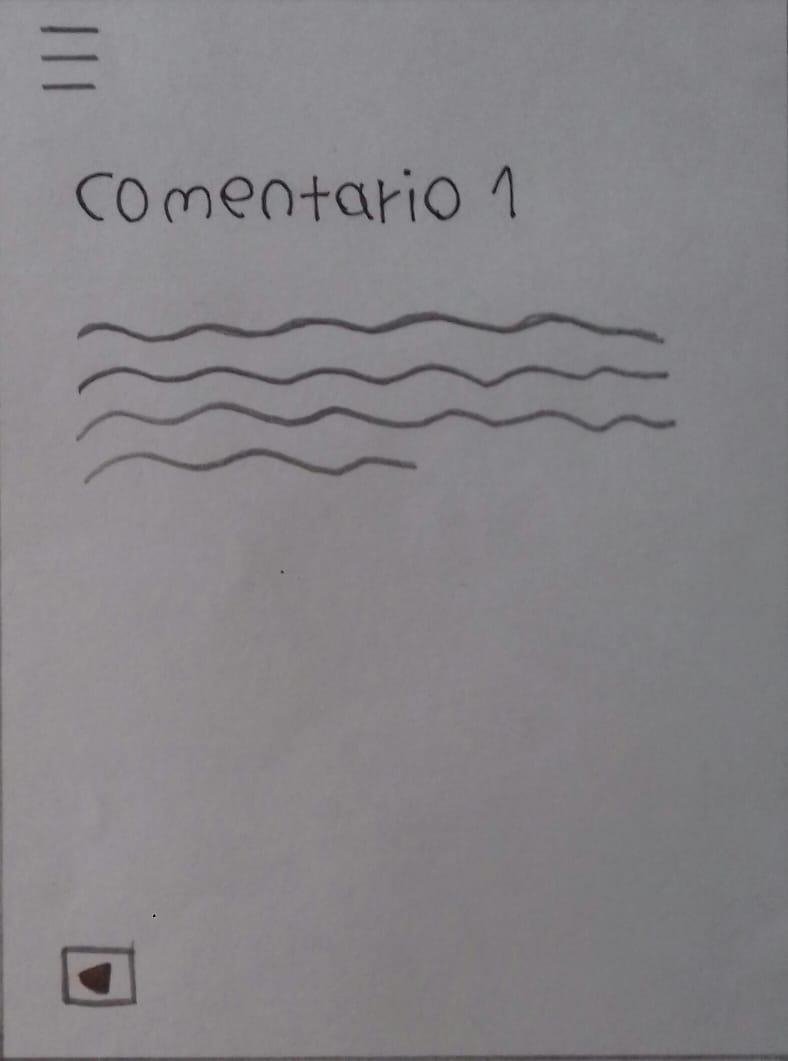 Comentario 1